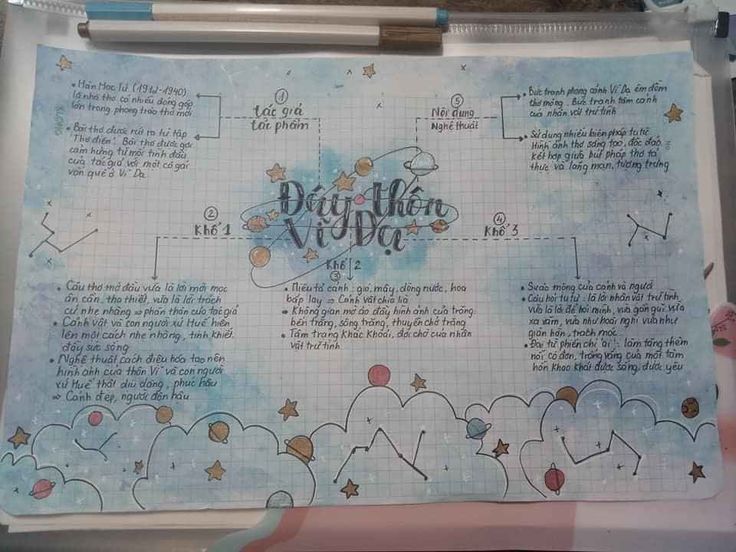 Đây thôn
Vĩ Dạ
①
Tác giả
tác phẩm
• Hàn Mạc Tử (1912-1940)
là nhà thơ có nhiều đóng góp
lớn trong phong trào thơ mới
• Bài thơ được rút ra từ tập
"Thơ điên". Bài thơ được gợi
cảm hứng từ mối tình đầu
của tác giả với một cô gái
vốn quê ở Vĩ Dạ.
②
Khổ 1
• Câu thơ mở đầu vừa là lời mời mọc
ân cần, tha thiết, vừa là lời trách
cứ nhẹ nhàng ⇒ phân thân của tác giả
• Cảnh vật và con người xứ Huế hiện
lên một cách nhẹ nhàng, tinh khiết,
đầy sức sống
• Nghệ thuật cách điệu hóa tạo nên
hình ảnh của thôn Vĩ và con người
xứ Huế thật dịu dàng, phúc hậu
⇒ Cảnh đẹp, người đôn hậu
Khổ 2
③
• Miêu tả cảnh: gió, mây, dòng nước, hoa
bắp lay ⇒ Cảnh vật chia lìa
⇒ Không gian mờ ảo đầy hình ảnh của trăng:
bến trăng, sông trăng, thuyền chở trăng
• Tâm trạng khắc khoải, đợi chờ của nhân
vật trữ tình
④
Khổ 3
• Sự ảo mộng của cảnh và người
• Câu hỏi tu từ: là lời nhân vật trữ tình,
vừa là lời để hỏi mình, vừa gần gũi vừa
xa xăm, vừa như hoài nghi vừa như
giận hờn, trách móc
• Đại từ phiếm chỉ "ai": làm tăng thêm
nỗi cô đơn, trống vắng của một tâm
hồn khao khát được sống, được yêu
⑤
Nội dung
Nghệ thuật
• Bức tranh phong cảnh Vĩ Dạ êm đềm
thơ mộng. Bức tranh tâm cảnh
của nhân vật trữ tình
• Sử dụng nhiều biện pháp tu từ
Hình ảnh thơ sáng tạo, độc đáo,
kết hợp giữa bút pháp thơ tả
thực và lãng mạn, tượng trưng